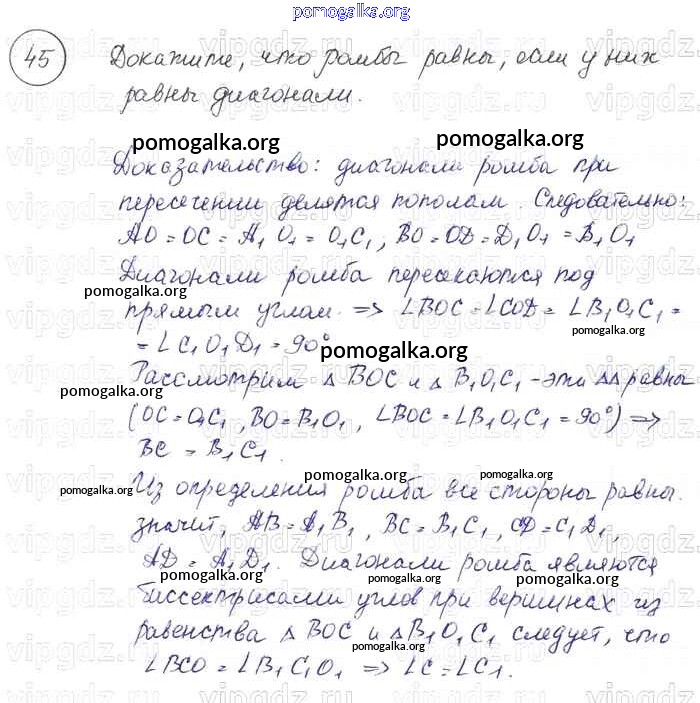 pomogalka.org
45 Докажите, что ромбы равны, если у них
равны диагонали.
pomogalka.org pomogalka.org
Доказательство: диагонали ромба при
пересечении делятся пополам. Следовательно:
AO = OC = A₁O₁ = O₁C₁; BO = OD = D₁O₁ = B₁O₁
Диагонали ромба пересекаются под
pomogalka.org
прямым углам. => ∠BOC = ∠COD = ∠B₁O₁C₁ =
pomogalka.org
= ∠C₁O₁D₁ = 90°
pomogalka.org
Рассмотрим △ BOC и △ B₁O₁C₁ - эти △△ равны
pomogalka.org
(OC = O₁C₁, BO = B₁O₁, ∠BOC = ∠B₁O₁C₁ = 90°) =>
BC = B₁C₁.
pomogalka.org pomogalka.org pomogalka.org
Из определения ромба все стороны равны.
значит, AB = A₁B₁, BC = B₁C₁, CD = C₁D₁,
AD = A₁D₁. Диагонали ромба являются
pomogalka.org pomogalka.org pomogalka.org
биссектрисами углов при вершинах из
равенства △ BOC и △B₁O₁C₁ следует, что
pomogalka.org pomogalka.org
∠BCO = ∠B₁C₁O₁ => ∠C = ∠C₁.